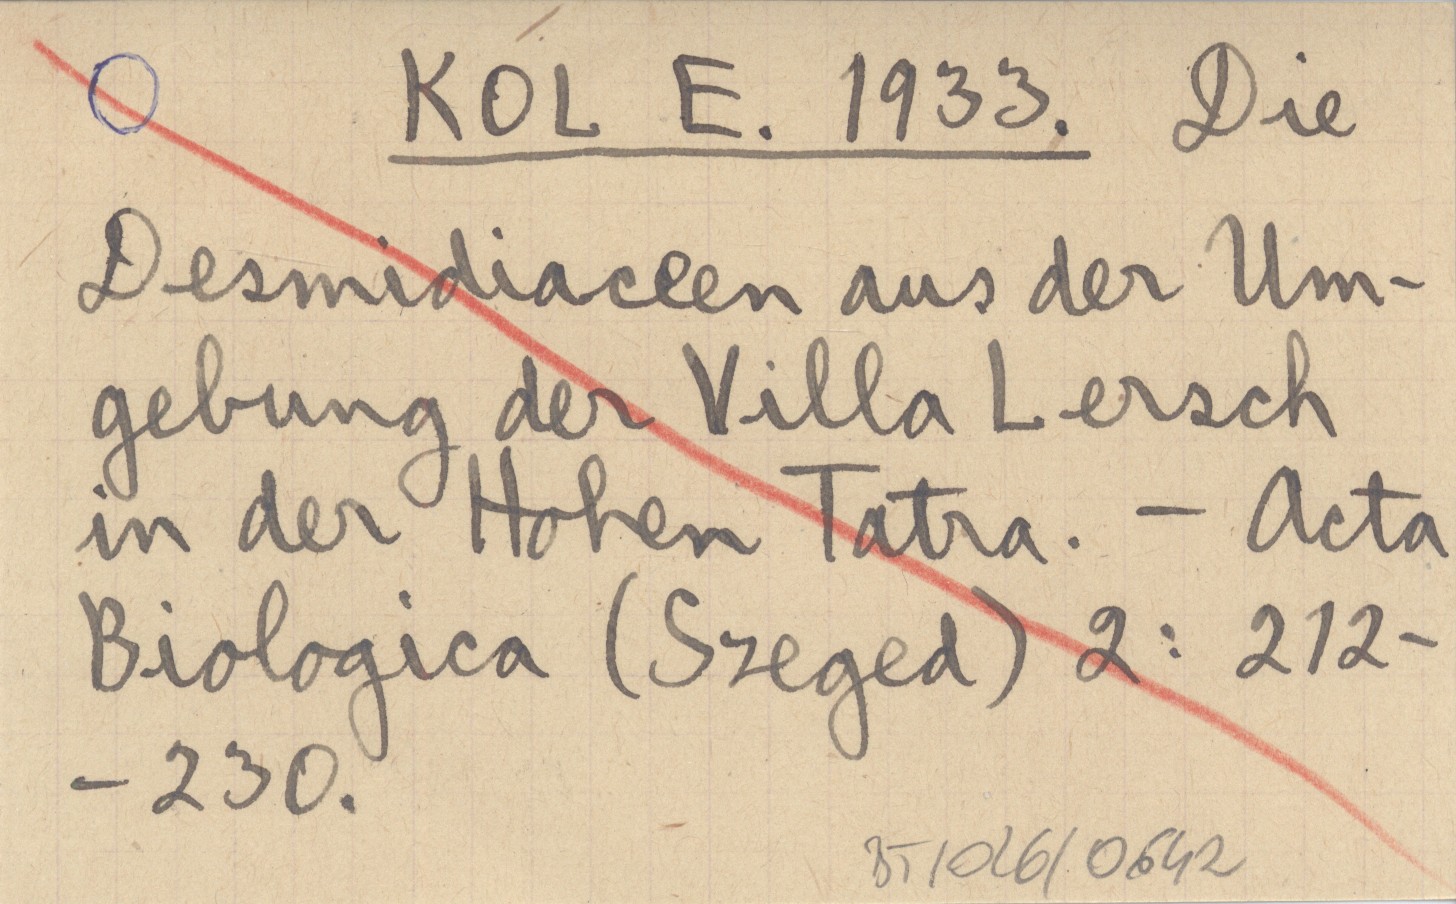 KOL E. 1933. Die
Desmidiaceen aus der Um-
gebung der Villa Lersch
in der Hohen Tatra. – Acta
Biologica (Szeged) 2: 212-
- 230.
BT/026/0642